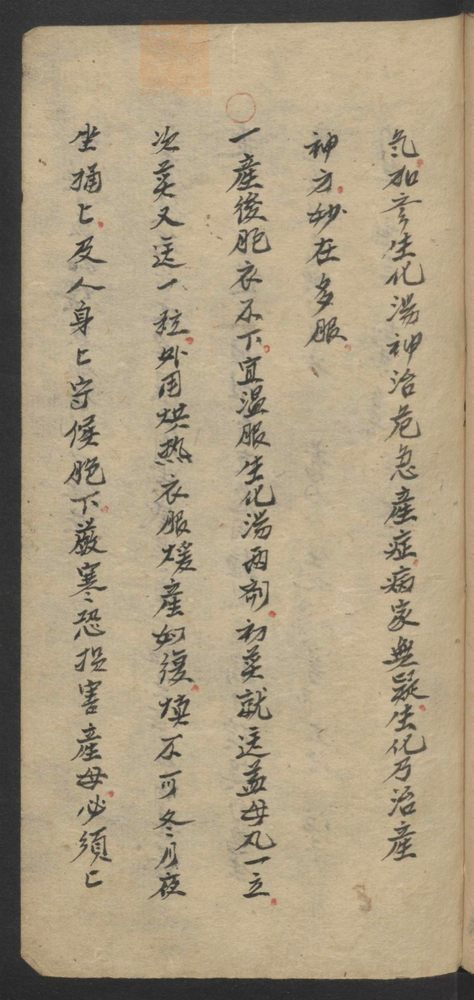 氣加參生化湯神治危急產症病家無疑生化乃治產
神方妙在多服
一產後胞衣不下宜温服生化湯两剂初煎就送益母丸一立
次煎又送一粒外用烘热衣服煖產婦腹慎不可冬月夜
坐桶上及人身上守候胞下嚴寒恐损害產母必須上